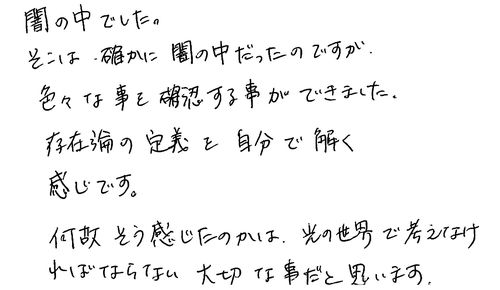 闇の中でした。
そこは、確かに闇の中だったのですが、
色々な事を確認する事ができました。
存在論の定義を自分で解く
感じです。
何故そう感じたのかは、光の世界で考えなけ
ればならない大切な事だと思います。